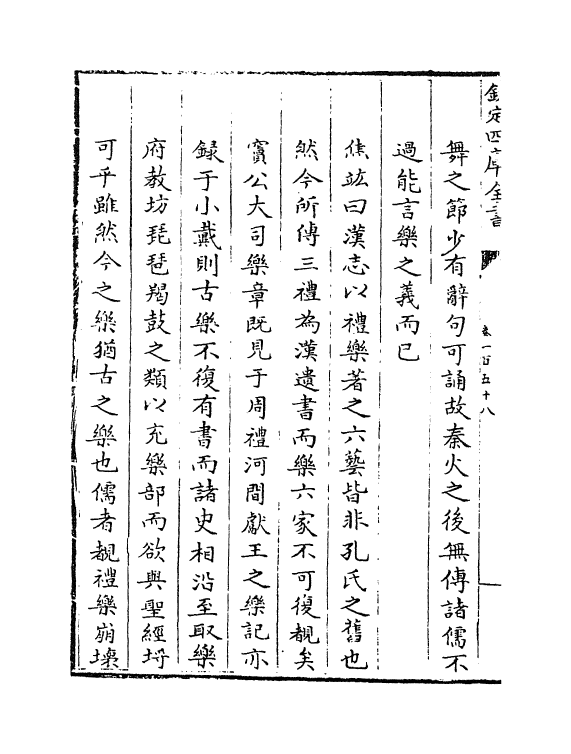 欽定四庫全書
卷一百五十八
舞之節少有辭句可誦故秦火之後無傳諸儒不
過能言樂之義而已
焦竑曰漢志以禮樂著之六藝皆非孔氏之舊也
然今所傳三禮為漢遺書而樂六家不可復覩矣
竇公大司樂章既見于周禮河間獻王之樂記亦
録于小戴則古樂不復有書而諸史相沿至取樂
府教坊琵琶羯鼓之類以充樂部而欲與聖經埒
可乎雖然今之樂猶古之樂也儒者覩禮樂崩壞